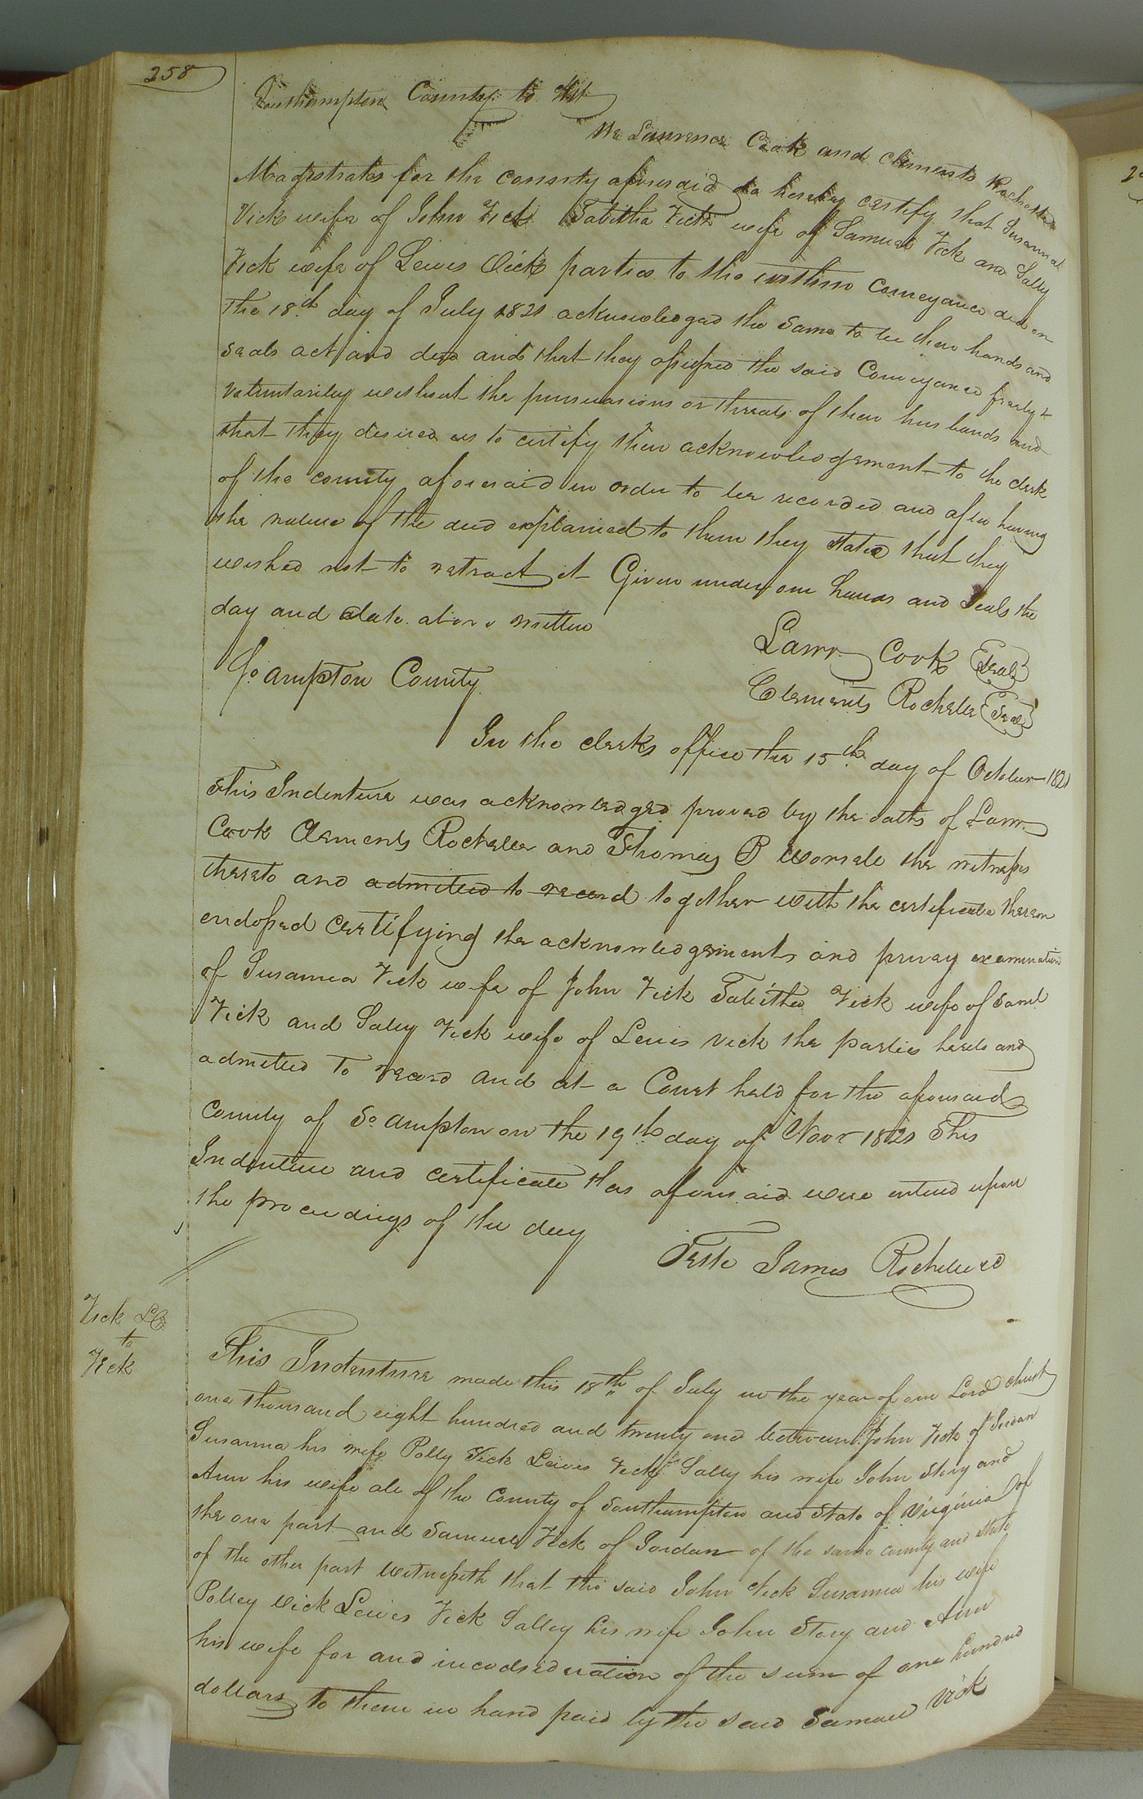 258
Southampton County to Wit
We Lawrence Cook and Clements Rochelle
Magistrates for the county aforesaid do hereby certify that Susannah
Vick wife of John Vick Tabitha Vick wife of Samuel Vick and Sally
Vick wife of Lewis Vick parties to the within conveyance did on
the 18th day of July 1821 acknowledged the same to be their hands and
seals act and deed and that they the said Conveyance freely &
voluntarily without the persuasions or threats of their husbands and
that they desired us to certify their acknowledgement to the clerk
of the county aforesaid in order to be recorded and after having
the nature of the deed explained to them they stated that they
wished not to retract it Given under our hands and Seals the
day and date above written
Lawr Cook Seal
Clements Rochelle Seal
So ampton County
In the clerks office the 15th day of October 1821
This Indenture was acknowledged proved by the oaths of Lawr
Cook Clements Rochelle and Thomas B Worrele the witnesses
thereto and admitted to record together with the certificate thereon
endorsed certifying the acknowledgements and privy examination
of Susanna Vick wife of John Vick Tabitha Vick wife of Saml
Vick and Salley Vick wife of Lewis Vick the parties hereto and
admitted to record and at a Court held for the aforesaid
County of So ampton on the 19th day of Novr 1821 This
Indenture and certificate thereon aforesaid were entered upon
the proceedings of the day
Teste James Rochelle CC
Vick &C
to
Vick
This Indenture made this 18th of July in the year of our Lord christ
one thousand eight hundred and twenty one between John Vick of Jordan
Susanna his wife Polly Vick Lewis Vick & Sally his wife John Story and
Ann his wife all of the County of Southampton and State of Virginia of
the one part and Samuel Vick of Jordan of the same county and State
of the other part witnesseth that the said John Vick Susanna his wife
Polley Vick Lewis Vick Salley his wife John Story and Ann
his wife for and in consideration of the sum of one hundred
dollars to them in hand paid by the said Samuel Vick